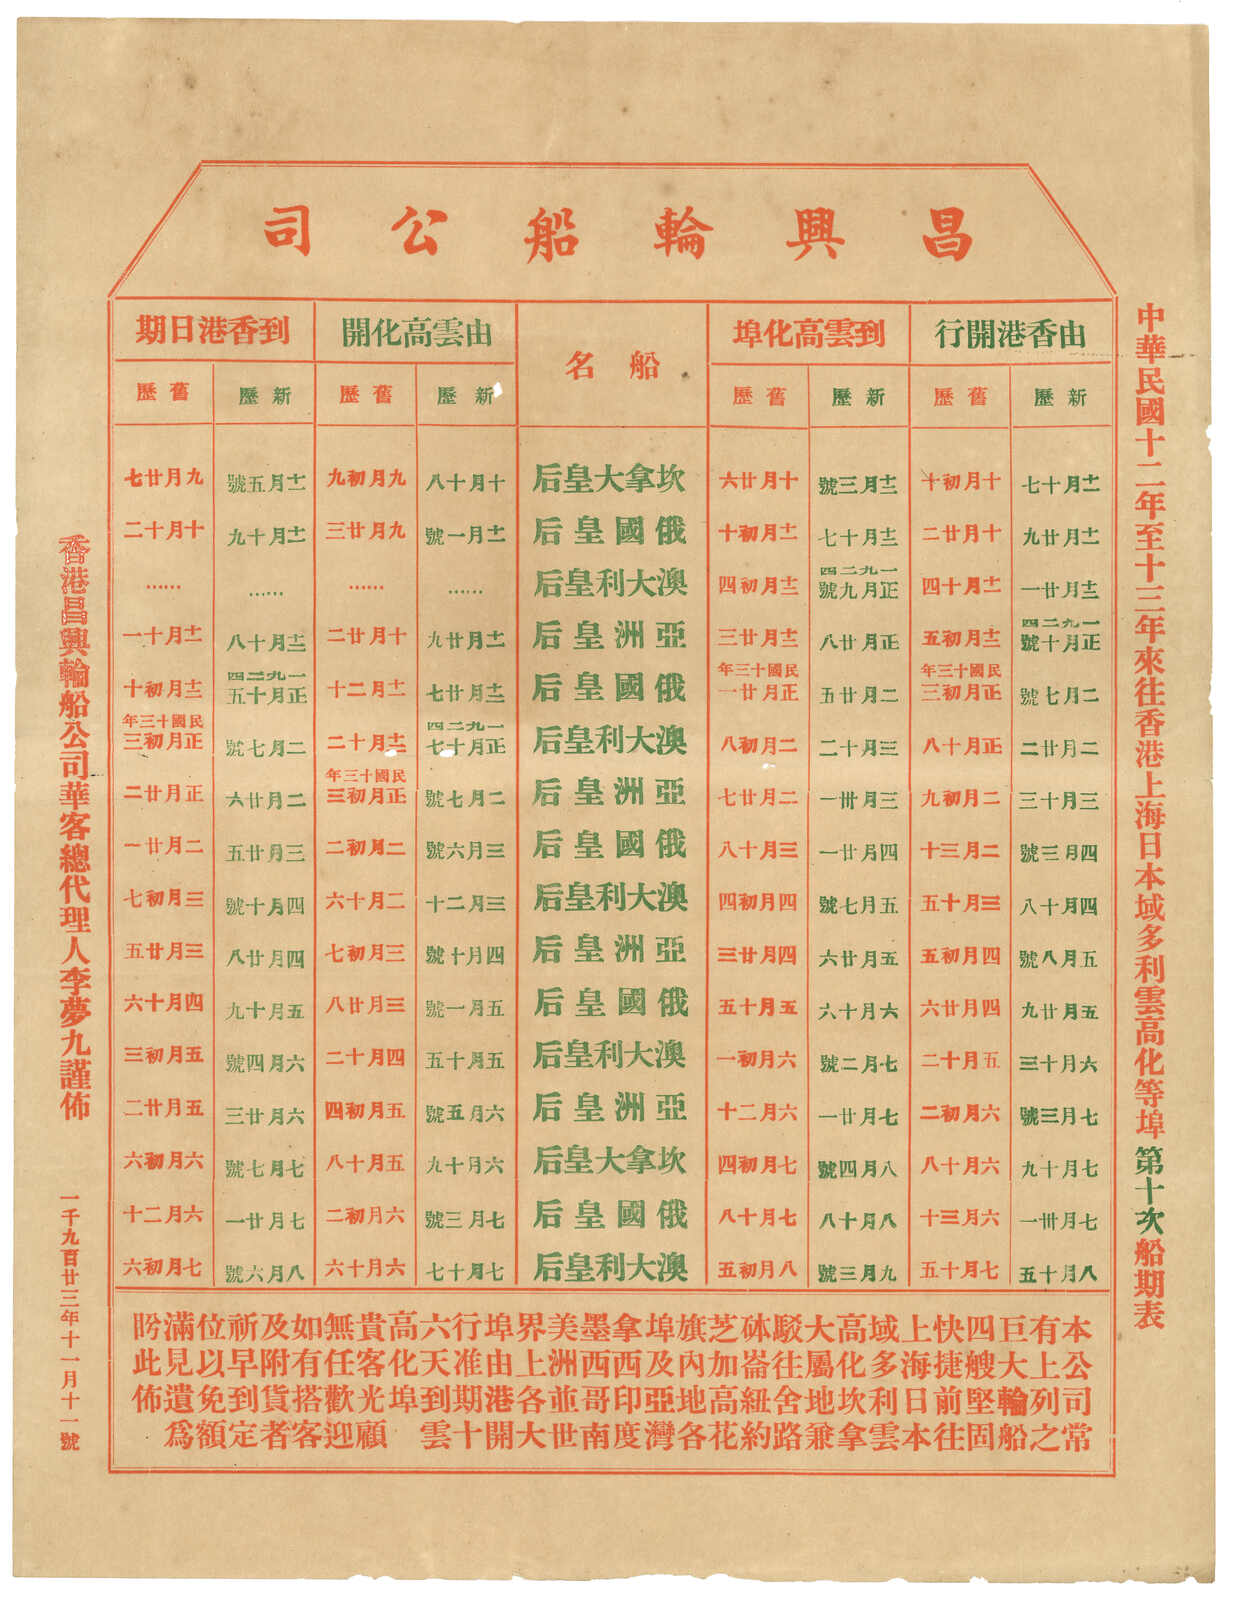 中華民國十二年至十三年來往香港上海日本域多利雲高化等埠第十次船期表
昌興輪船公司
由香港開行 到雲高化埠 船名 由雲高化開 到香港日期
新歷 舊歷 新歷 舊歷 新歷 舊歷 新歷 舊歷
十一月十七 十月初十 十二月三號 十月廿六 坎拿大皇后 十月十八 九月初九 十一月五號 九月廿七
十一月廿九 十月廿二 十二月十七 十一月初十 俄國皇后 十一月一號 九月廿三 十一月十九 十月十二
十二月廿一 十一月十四 一九二四正月九號 十二月初四 澳大利皇后 …… …… …… ……
一九二四正月十號 十二月初五 正月廿八 十二月廿三 亞洲皇后 十一月廿九 十月廿二 十二月十八 十一月十一
二月七號 民國十三年正月初三 二月廿五 民國十三年正月廿一 俄國皇后 十二月廿七 十一月二十 一九二四正月十五 十二月初十
二月廿二 正月十八 三月十二 二月初八 澳大利皇后 一九二四正月十七 十二月十二 二月七號 民國十三年正月初三
三月十三 二月初九 三月卅一 二月廿七 亞洲皇后 二月七號 民國十三年正月初三 二月廿六 正月廿二
四月三號 二月三十 四月廿一 三月十八 俄國皇后 三月六號 二月初二 三月廿五 二月廿一
四月十八 三月十五 五月七號 四月初四 澳大利皇后 三月二十 二月十六 四月十號 三月初七
五月八號 四月初五 五月廿六 四月廿三 亞洲皇后 四月十號 三月初七 四月廿八 三月廿五
五月廿九 四月廿六 六月十六 五月十五 俄國皇后 五月一號 三月廿八 五月十九 四月十六
六月十三 五月十二 七月二號 六月初一 澳大利皇后 五月十五 四月十二 六月四號 五月初三
七月三號 六月初二 七月廿一 六月二十 亞洲皇后 六月五號 五月初四 六月廿三 五月廿二
七月十九 六月十八 八月四號 七月初四 坎拿大皇后 六月十九 五月十八 七月七號 六月初六
七月卅一 六月三十 八月十八 七月十八 俄國皇后 七月三號 六月初二 七月廿一 六月二十
八月十五 七月十五 九月三號 八月初五 澳大利皇后 七月十七 六月十六 八月六號 七月初六
本公司常
有上列之
巨大輪船
四艘堅固
快捷前往
上海日本
域多利雲
高化坎拿
大屬地兼
駁往舍路
砵崙紐約
芝加高花
旗內地各
埠及亞灣
拿西印度
墨西哥南
美洲並世
界上各大
埠由港開
行准期十
六天到雲
高化埠
貴客光顧
無任歡迎
如有搭客
及附貨者
祈早到定
位以免額
滿見遺為
盼此佈
香港昌興輪船公司華客總代理人李夢九謹佈
一千九百廿三年十一月十一號